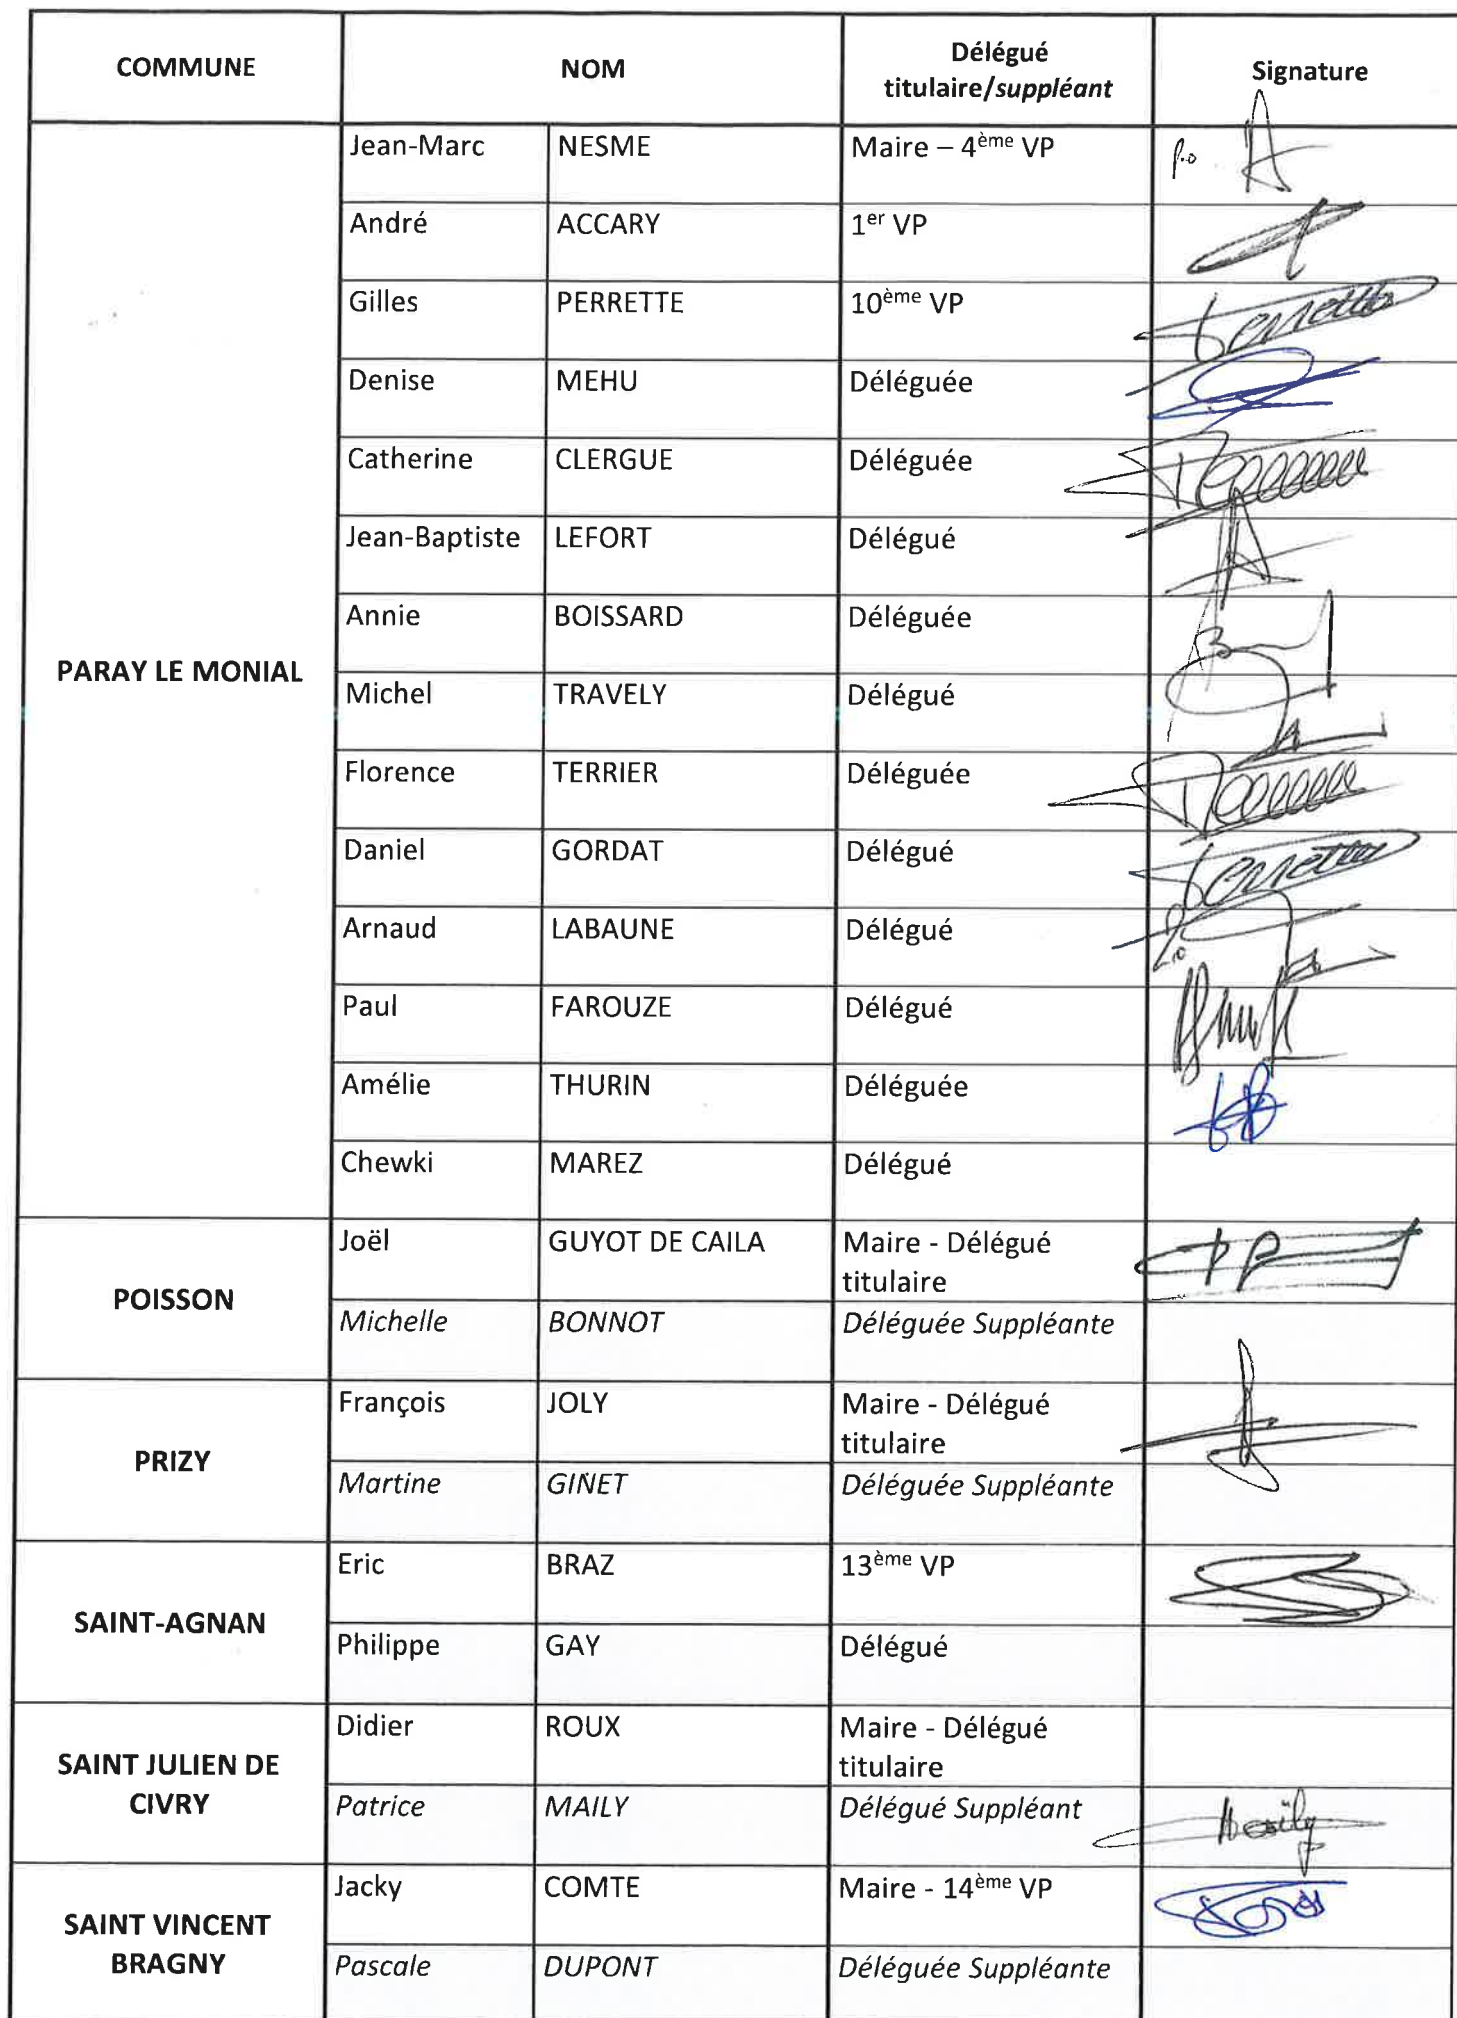 COMMUNE NOM Délégué titulaire/suppléant Signature
PARAY LE MONIAL
Jean-Marc NESME Maire – 4ème VP p.o
André ACCARY 1er VP
Gilles PERRETTE 10ème VP Perrette
Denise MEHU Déléguée
Catherine CLERGUE Déléguée
Jean-Baptiste LEFORT Délégué
Annie BOISSARD Déléguée
Michel TRAVELY Délégué
Florence TERRIER Déléguée
Daniel GORDAT Délégué Perrette
Arnaud LABAUNE Délégué
Paul FAROUZE Délégué
Amélie THURIN Déléguée
Chewki MAREZ Délégué
POISSON
Joël GUYOT DE CAILA Maire - Délégué
titulaire
Michelle BONNOT Déléguée Suppléante
PRIZY
François JOLY Maire - Délégué
titulaire
Martine GINET Déléguée Suppléante
SAINT-AGNAN
Eric BRAZ 13ème VP
Philippe GAY Délégué
SAINT JULIEN DE
CIVRY
Didier ROUX Maire - Délégué
titulaire
Patrice MAILY Délégué Suppléant Maily
SAINT VINCENT
BRAGNY
Jacky COMTE Maire - 14ème VP
Pascale DUPONT Déléguée Suppléante